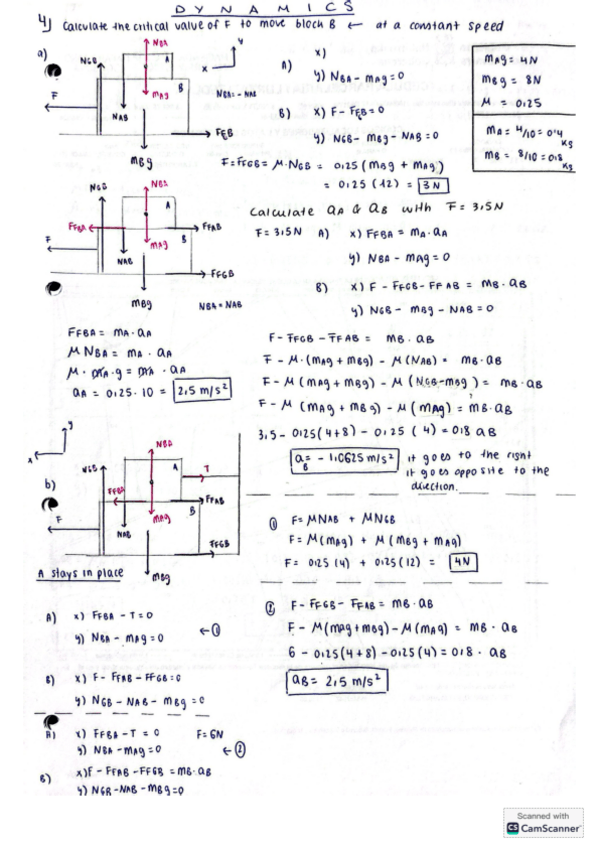 DYNAMICS
4) Calculate the critical value of F to move block B ← at a constant speed
a)
NGB
NBA
A
B
F
NAB
mAg
FfB
mBg
y
x
A) x)
y) NBA - mAg = 0
B) x) F - FfB = 0
y) NGB - mBg - NAB = 0
F = FfGB = M·NGB = 0'25 (mBg + mAg)
= 0'25 (12) = 3N
mAg = 4N
mBg = 8N
M = 0'25
mA = 4/10 = 0'4 kg
mB = 8/10 = 0'8 kg
NGB
NBA
A
FfBA
FfAB
B
F
NAB
mAg
FfGB
mBg
NBA = NAB
Calculate aA & aB with F = 3'5N
F = 3'5N A) x) FfBA = mA·aA
y) NBA - mAg = 0
B) x) F - FfGB - FfAB = mB·aB
y) NGB - mBg - NAB = 0
FfBA = mA·aA
M NBA = mA·aA
M·mA·g = mA·aA
aA = 0'25·10 = 2'5 m/s²
F - FfGB - FfAB = mB·aB
F - M·(mAg + mBg) - M(NAB) = mB·aB
F - M(mAg + mBg) - M(NGB - mBg) = mB·aB
F - M(mAg + mBg) - M(mAg) = mB·aB
3'5 - 0'25(4+8) - 0'25(4) = 0'8 aB
aB = -1'0625 m/s² it goes to the right
it goes opposite to the
direction.
y
x
b)
NGB
NBA
A
T
FfBA
FfAB
B
F
NAB
mAg
FfGB
mBg
A stays in place
① F = MNAB + MNGB
F = M(mAg) + M(mBg + mAg)
F = 0'25(4) + 0'25(12) = 4N
A) x) FfBA - T = 0
y) NBA - mAg = 0 ←①
B) x) F - FfAB - FfGB = 0
y) NGB - NAB - mBg = 0
② F - FfGB - FfAB = mB·aB
F - M(mAg + mBg) - M(mAg) = mB·aB
6 - 0'25(4+8) - 0'25(4) = 0'8·aB
aB = 2'5 m/s²
A) x) FfBA - T = 0 F = 6N
y) NBA - mAg = 0 ←②
B) x) F - FfAB - FfGB = mB·aB
y) NGB - NAB - mBg = 0
Scanned with
CS CamScanner